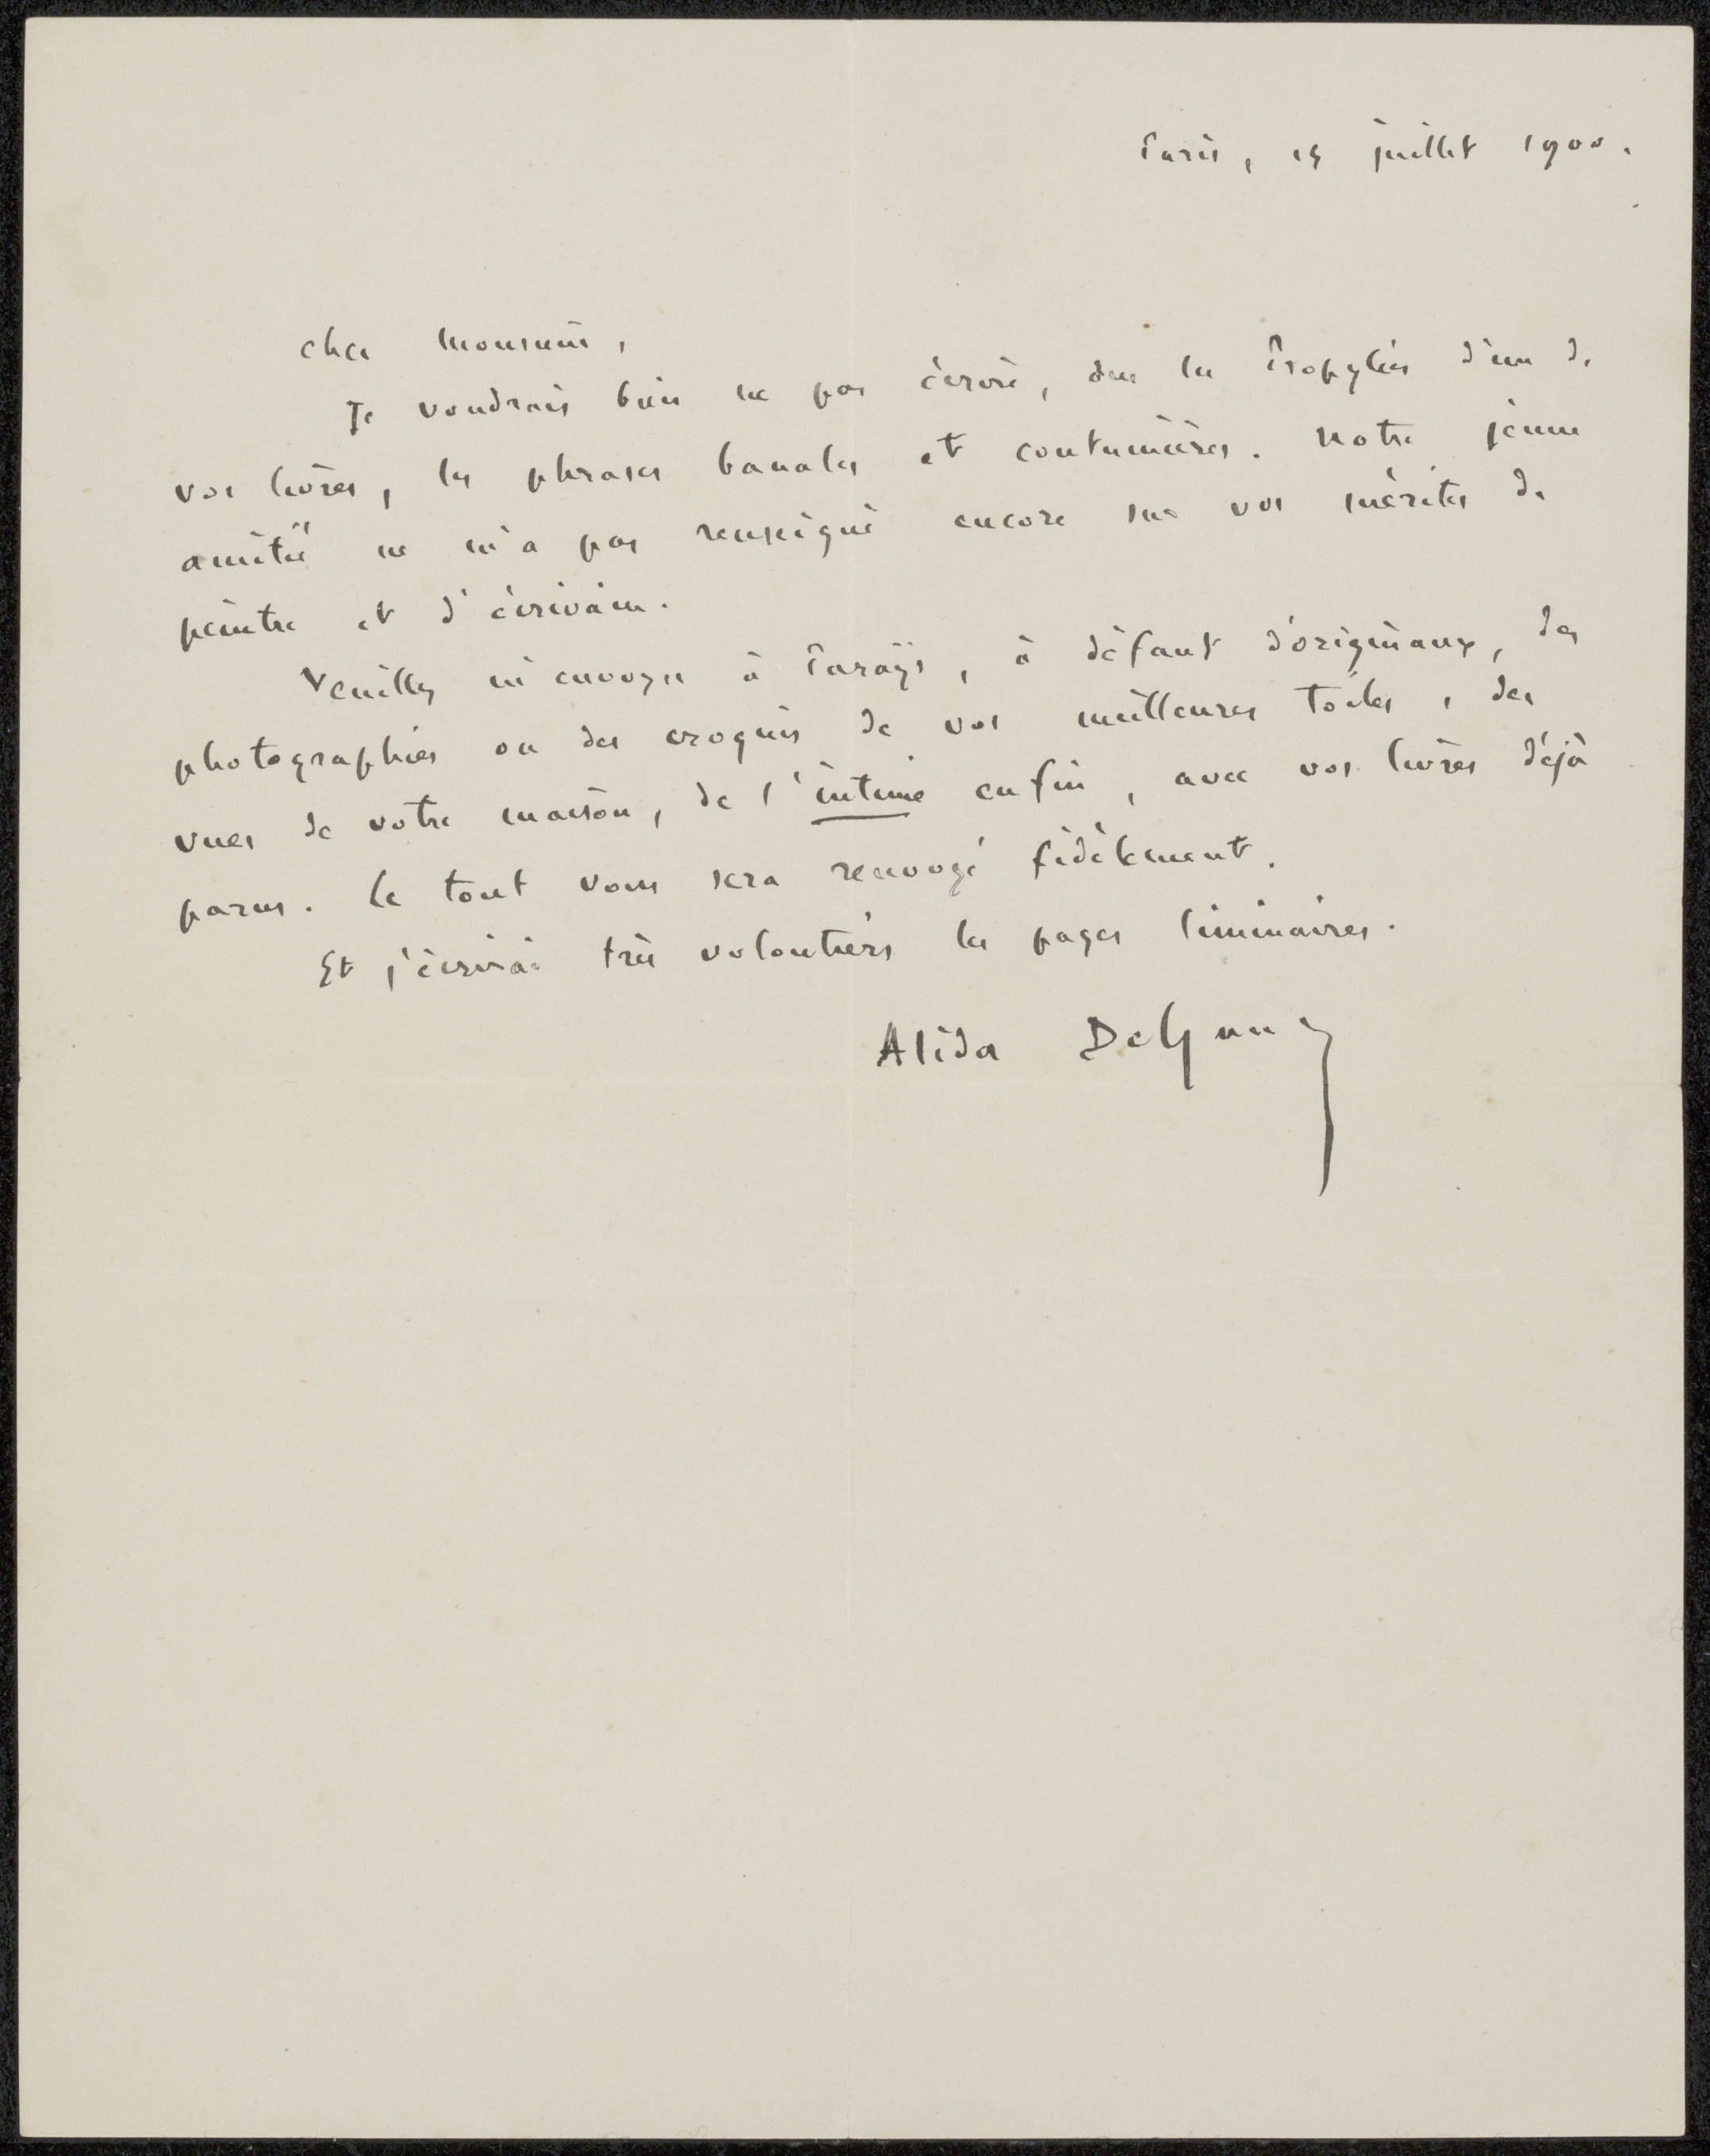 Paris, 15 juillet 1900.
cher Monsieur,
Je voudrais bien ne pas écrire, dans les Propylées d'un de
vos livres, les phrases banales et coutumières. Notre jeune
amitié ne m'a pas renseigné encore sur vos mérites de
peintre et d'écrivain.
Veuillez m'envoyer à Parays, à défaut d'originaux, des
photographies ou des croquis de vos meilleures toiles, des
vues de votre maison, de l'intime enfin, avec vos livres déjà
parus. Le tout vous sera renvoyé fidèlement.
Et j'écrirai très volontiers les pages liminaires.